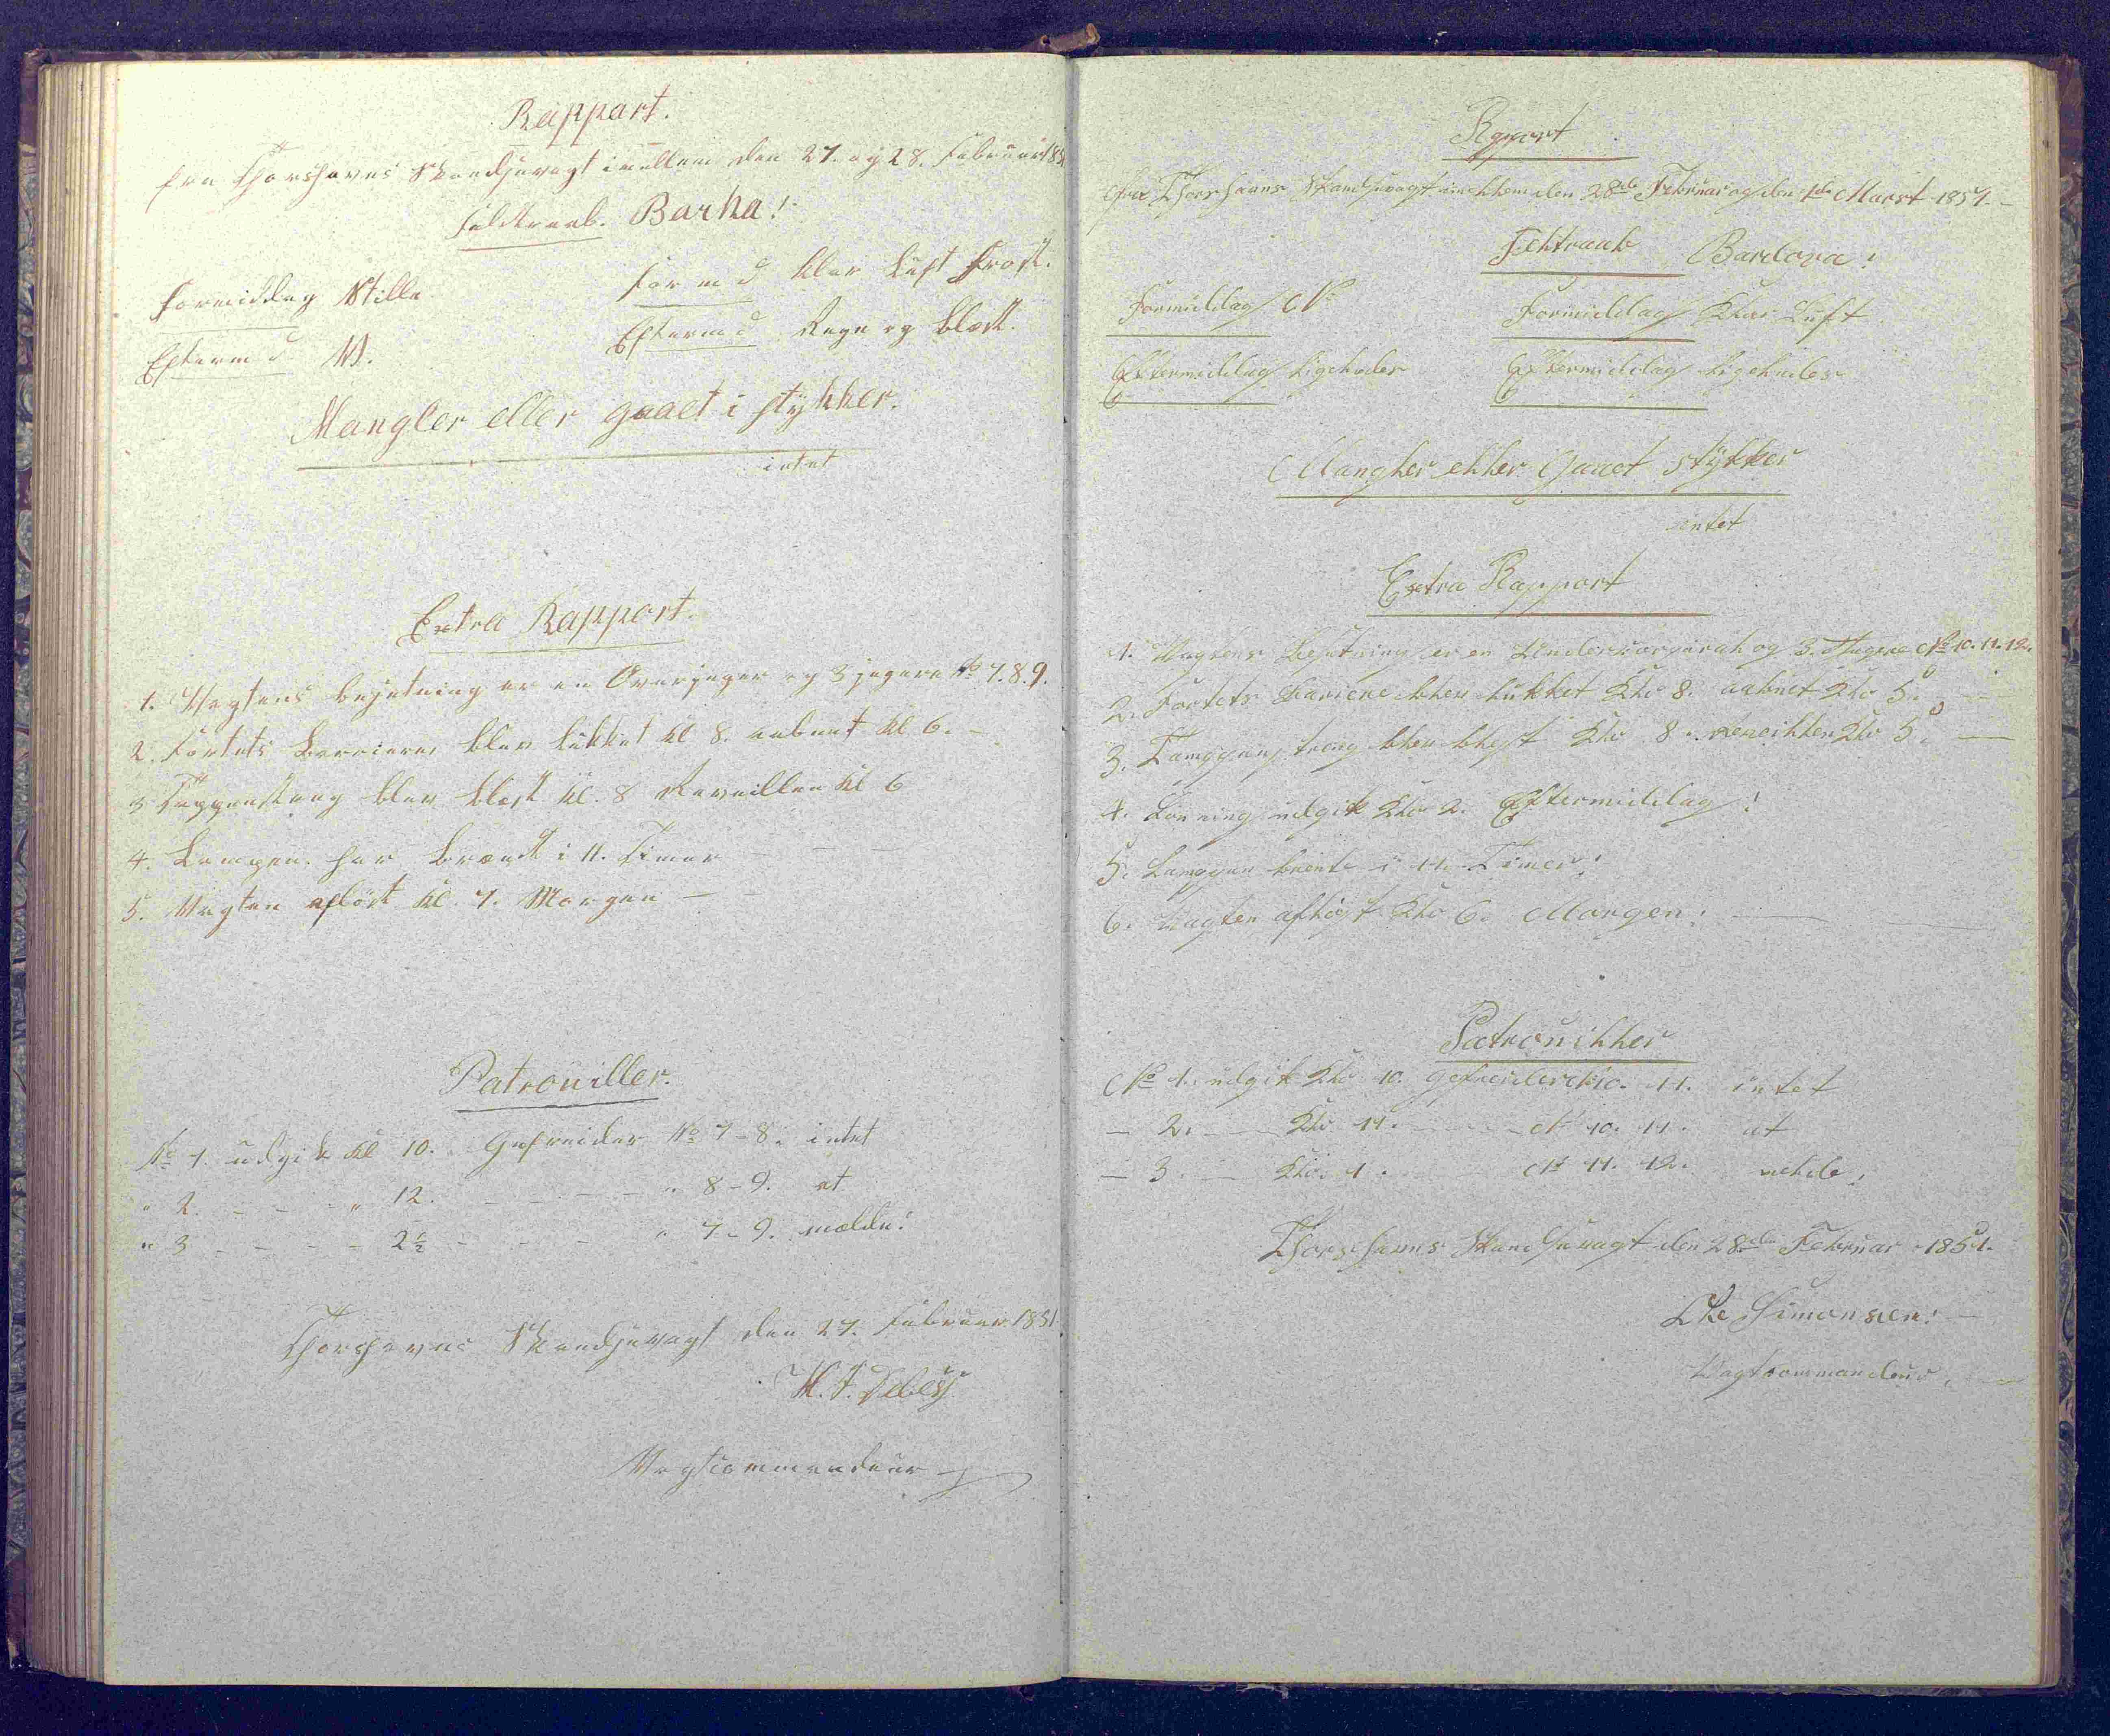 Rappart.
fra Thorshavns Skandsevagt imellem den 27. og 28. Februar 1851
Feldtraab. Barka!
Formiddag Stille.
Form d klar Luft Frost.
Efterm d. V.
Efterm d Regn og Blæst.
Mangler eller gaaet i stykker.
intet
Extra Rapport.
1. Vagtens besætning er en Overjæger og 3 jægere No 7. 8. 9.
2. Fortets Barrierer blev lukket Kl 8. aabnet Kl 6. -
3 Tappenstræg blev blæst Kl. 8 Reveillen Kl 6
4. Lampen har brændt i 11. Timer - - -
5. Vagten afløst Kl. 7. Morgen - -
Patrouiller.
No 1. udgik Kl 10. Gefreider No 7-8. intet
" 2. - - - " 12. - - - - " 8-9. at
" 3 - - - - 2½ - - - " 7-9. melde!
Thorshavns Skandsevagt den 27. Februar 1851.
H. J. Debess
Vagtcommandeur
Rapport
fra Thorshavns Skandsevagt imellem den 28de Februar og den 1de Marst 1851 -
Feltraab Bardova!
Formiddag N
Formiddag Klar Luft
Eftermiddag Ligeledes
Eftermiddag Ligeledes
Mangler eller Gaaet stykker
intet
Extra Rapport
1. Vagtens besætning er en Undercorporal og 3. Jægere No 10. 11. 12.
2. Fortets Bariene blev lukket Klo 8. aabnet Klo 5.
3. Tampganstreng blev blæst Klo 8. reveillen Klo 5. -
4. Lønning udgik Klo 2. Eftermiddag!
5. Lampen brente i 11. Timer!
6. Vagten afløst Klo 6. Morgen! -
Patrouiller
No 1. udgik Klo 10. Gefreider No 10. 11. intet
- 2. - Klo 11. - - - N 10. 11. at
- 3. - Klo. 1. N 11. 12. melde!
Thorshavns Skandsevagt den 28de Februar 1851.
Simonsen! -
Vagtkommandeur. -